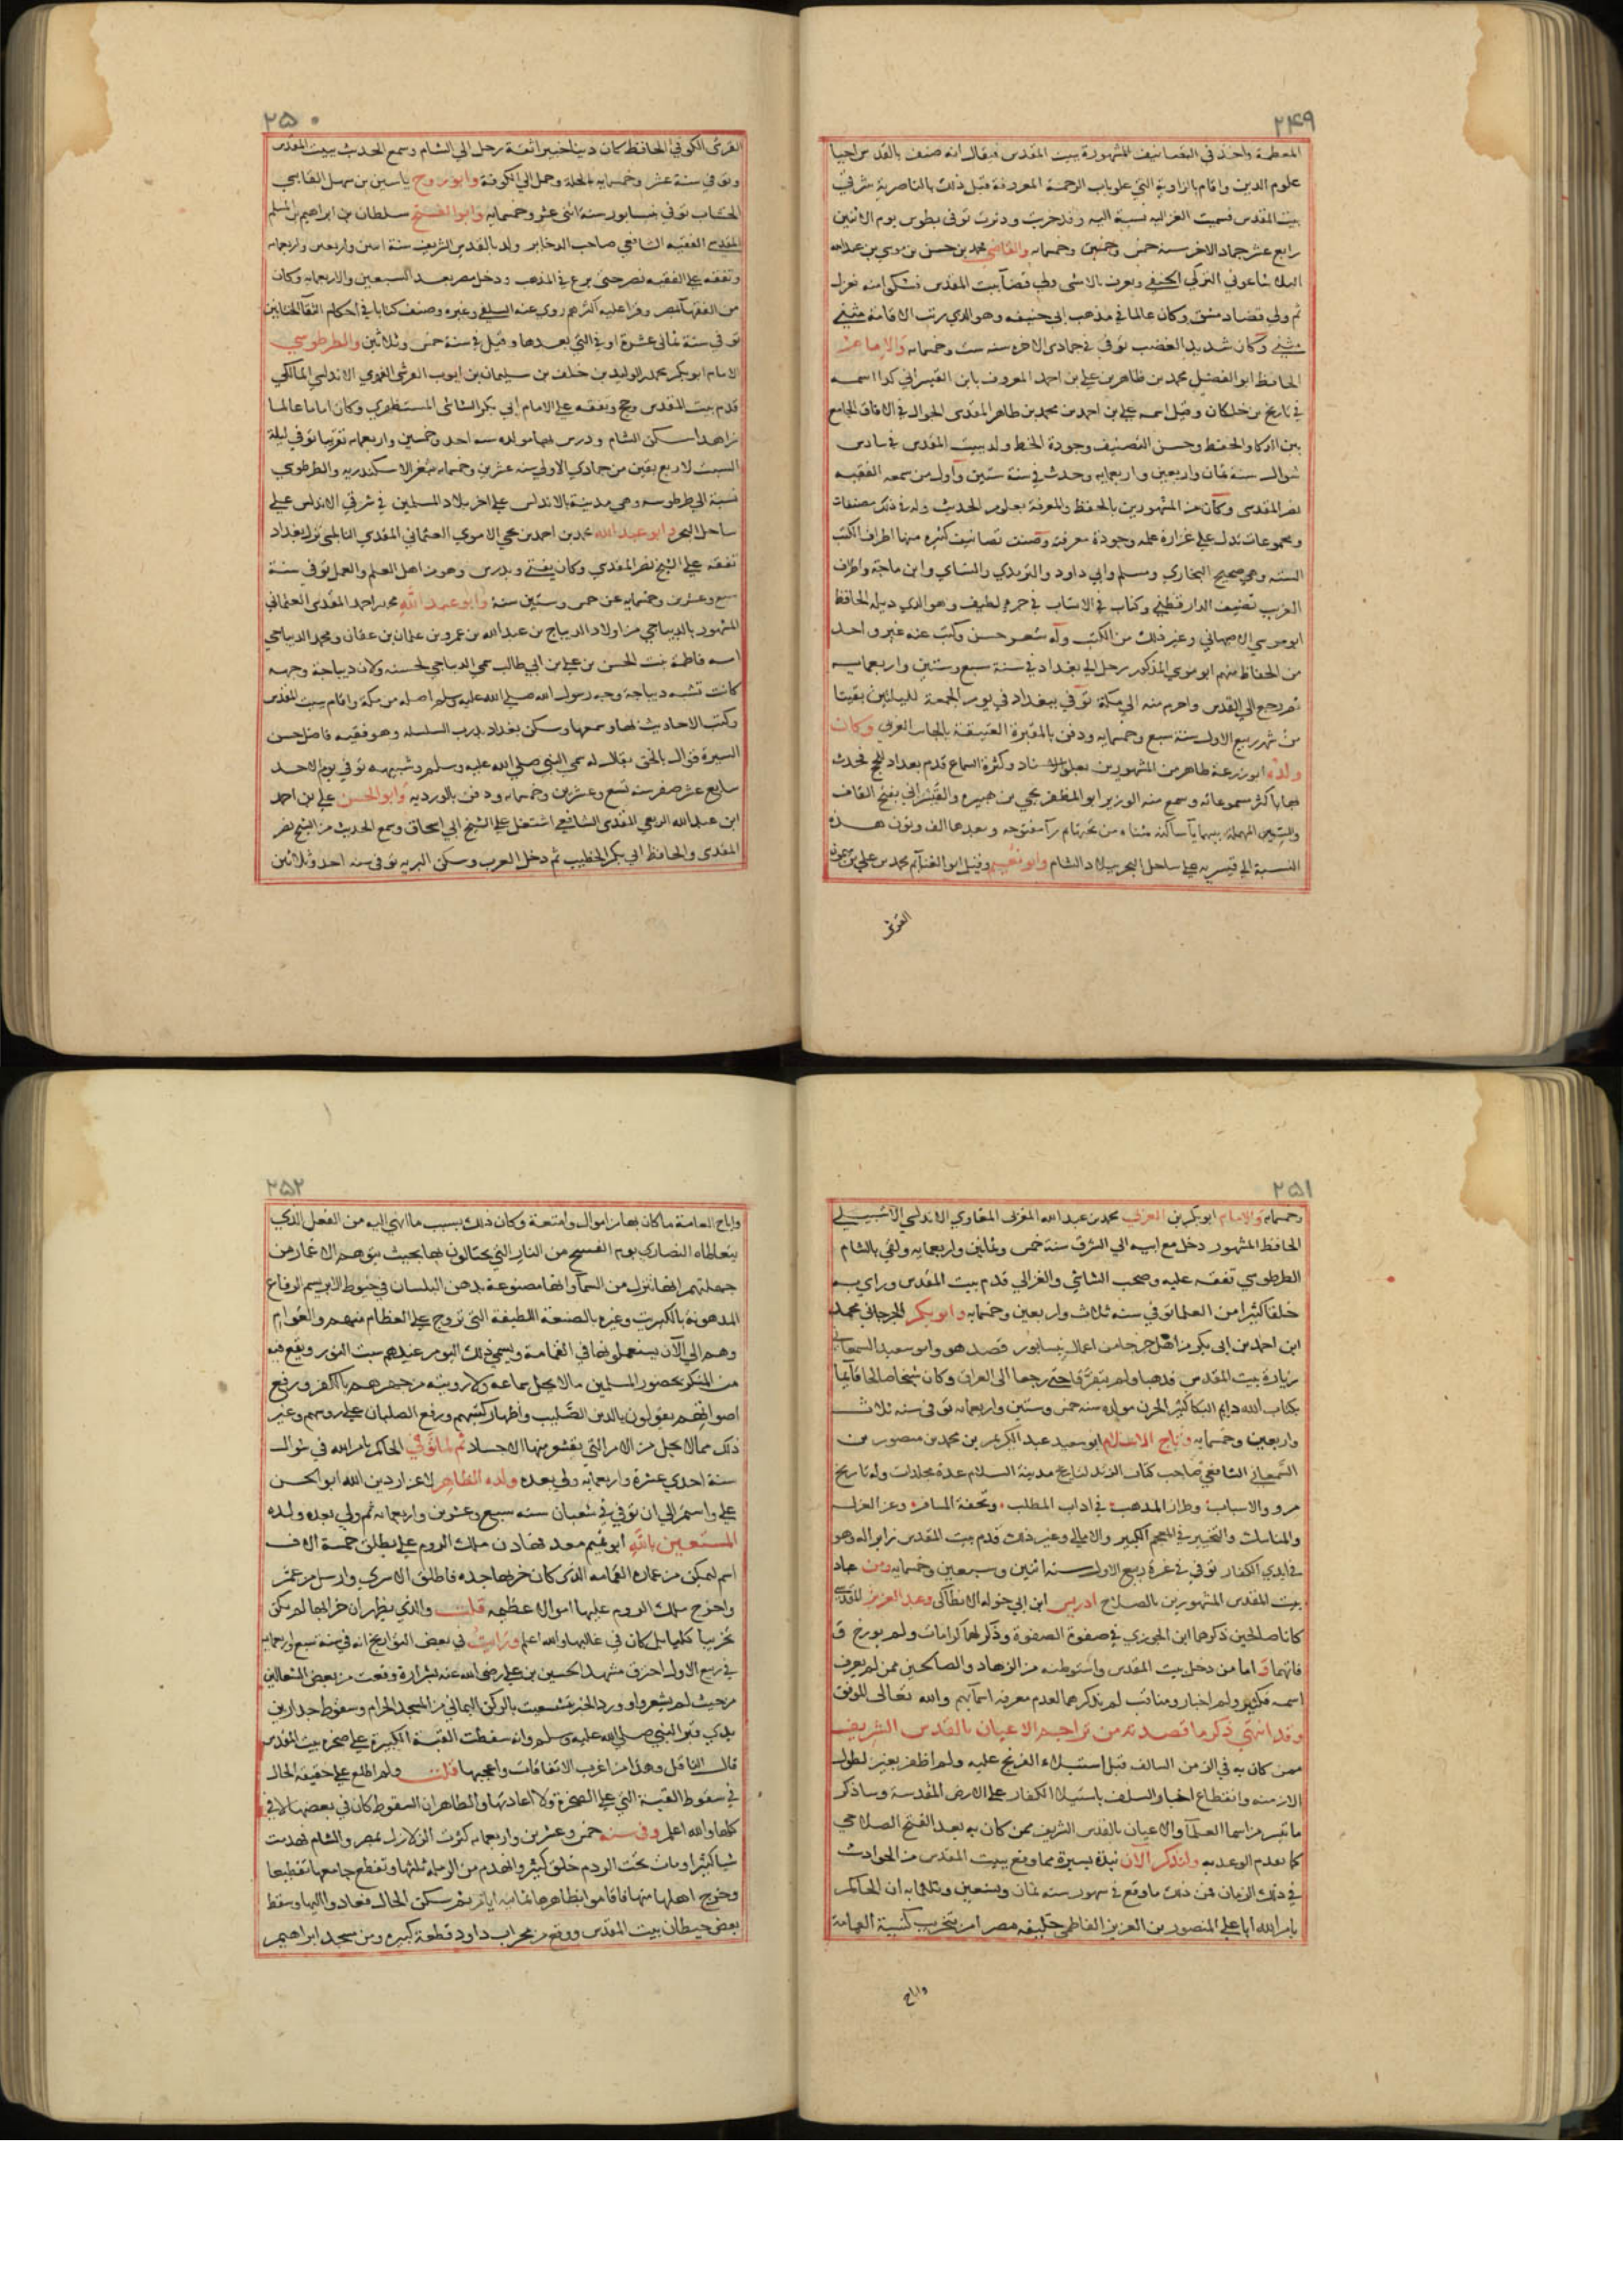 ٢٤٩
المعظمة واخذ في التصانيف المشهورة ببيت المقدس فيقال انه صنف بالقدس احيا
علوم الدين واقام بالزاوية التي علو باب الرحمة المعروفة قبل ذلك بالناصرية شرقي
بيت المقدس فسميت الغزاليه نسبة اليه وقد خربت ودثرت توفي بطوس يوم الاثنين
رابع عشر جماد الاخر سنه خمس وخمسمايه والقاضي محمد بن حسن بن موسى بن عبدالله
البلاشاعوني التركي الحنفي ويعرف بالاشى ولي قضا بيت المقدس فشكوا منه فعزل
ثم ولي قضا دمشق وكان عالما في مذهب ابي حنيفه وهو الذي رتب الاقامة مثنى
مثنى وكان شديد الغضب توفي في جمادى الاخره سنه ست وخمسمايه والامام
الحافظ ابو الفضل محمد بن طاهر بن علي بن احمد المعروف بابن القيسراني كذا اسمه
في تاريخ بن خلكان وقيل اسمه علي بن احمد بن محمد بن طاهر المقدسي الجوال في الافاق الجامع
بين الذكا والحفظ وحسن التصنيف وجودة الخط ولد ببيت المقدس في سادس
شوال سنة ثمان واربعين واربعمايه وحدث في سنة ستين واول من سمعه الفقيه
نصر المقدسى وكان من المشهورين بالحفظ والمعرفة بعلوم الحديث وله في ذلك مصنفات
ومجموعات تدل على غزارة علمه وجودة معرفته وصنف تصانيف كثيره منها اطراف الكتب
الستة وهي صحيح البخاري ومسلم وابي داود والترمذي والنساي وابن ماجة واطراف
الغريب تصنيف الدارقطني وكتاب في الانساب في جزء لطيف وهو الذي ذيله الحافظ
ابو موسي الاصبهاني وغير ذلك من الكتب وله شعر حسن وكتب عنه غير واحد
من الحفاظ منهم ابو موسي المذكور رحل الي بغداد في سنة سبع وستين واربعمايه
ثم رجع الي القدس واحرم منه الي مكة توفي ببغداد في يوم الجمعة لليلتين بقيتا
من شهر ربيع الاول سنة سبع وخمسمايه ودفن بالمقبرة العتيقة بالجانب الغربي وكان
ولده ابو زرعة طاهر من المشهورين بعلو الاسناد وكثرة السماع قدم بغداد للحج فحدث
بها باكثر مسموعاته وسمع منه الوزير ابو المظفر يحيي بن هبيره والقيسراني بفتح القاف
والسين المهملة بينهما يا ساكنه مثناه من تحتها ثم را مفتوحه وبعدها الف ونون هذه
النسبة الي قيسريه علي ساحل البحر ببلاد الشام وابو نعيم وقيل ابو الغنايم محمد بن علي بن ميمون
القرشى
٢٥٠
القرشى الكوفي الحافظ كان دينا خيرا ثقة رحل الي الشام وسمع الحديث ببيت المقدس
وتوفي سنة عشر وخمسمايه بالحلة وحمل الي الكوفة وابو روح ياسين بن سهل القايني
الخشاب توفي بنيسابور سنة اثنى عشر وخمسمايه وابو الفتح سلطان بن ابراهيم بن المسلم
المقدسي الفقيه الشافعي صاحب الدخاير ولد بالقدس الشريف سنة اثنين واربعين واربعمايه
وتفقه علي الفقيه نصر حتى برع في المذهب ودخل مصر بعد السبعين والاربعمايه وكان
من الفقها بمصر وقرا عليه اكثرهم روي عنه السلفي وغيره وصنف كتابا في احكام التقا الختانين
توفي سنة ثماني عشرة او في التي بعدها وقيل في سنة خمس وثلاثين والطرطوسي
الامام ابو بكر محمد بن الوليد بن خلف بن سليمان بن ايوب القرشى الفهري الاندلسي المالكي
قدم بيت المقدس وحج وتفقه علي الامام ابي بكر الشاشى المستظهري وكان اماما عالما
زاهدا سكن الشام ودرس بها مولده سنه احد وخمسين واربعمايه تقريبا توفي ليلة
السبت لاربع بقين من جمادي الاولي سنه عشرين وخمسمايه بثغر الاسكندريه والطرطوسي
نسبة الي طرطوسه وهي مدينة بالاندلس علي اخر بلاد المسلمين في شرقي الاندلس علي
ساحل البحر وابو عبد الله محمد بن احمد بن يحيي الاموي العثماني المقدسي النابلسي نزيل بغداد
تفقه علي الشيخ نصر المقدسي وكان يفتي ويدرس وهو من اهل العلم والعمل توفي سنة
سبع وعشرين وخمسمايه عن خمس وستين سنة وابو عبد الله محمد بن احمد المقدسى العثماني
المشهور بالديباجي من اولاد الديباج بن عبد الله بن عمرو بن عثمان بن عفان ومحمد الديباجي
امه فاطمة بنت الحسن بن علي بن ابي طالب سمي الديباجي لحسنه ولان ديباجة وجهه
كانت تشبه ديباجة وجه رسول الله صلي الله عليه وسلم اصله من مكة واقام ببيت المقدس
وكتب الاحاديث بها وسمعها وسكن بغداد بدرب السلسله وهو فقيه فاضل حسن
السيرة قوال بالحق يقال له سمي النبي صلي الله عليه وسلم وشبيهه توفي يوم الاحد
سابع عشر صفر سنه تسع وعشرين وخمسمايه ودفن بالورديه وابو الحسن علي بن احمد
ابن عبد الله الربعي المقدسى الشافعي اشتغل علي الشيخ ابي اسحاق وسمع الحديث من الشيخ نصر
المقدسى والحافظ ابي بكر الخطيب ثم دخل الغرب وسكن المريه توفى سنه احد وثلاثين
٢٥١
وخمسمايه والامام ابو بكر بن العربي محمد بن عبد الله المغربى المعافري الاندلسي الاشبيلي
الحافظ المشهور دخل مع ابيه الي الشرق سنة خمس وثمانين واربعمايه ولقي بالشام
الطرطوسي تفقه عليه وصحب الشاشي والغزالي قدم بيت المقدس وراي به
خلقا كثيرا من العلما توفي سنه ثلاث واربعين وخمسمايه وابو بكر الجرجاني محمد
ابن احمد بن ابى بكر من اهل جرجا من اعمال نيسابور قصد هو وابو سعيد السمعاني
زيارة بيت المقدس فدهبا ولم يتفرقا حتي رجعا الى العراق وكان شيخا صالحا قايما
بكتاب الله دايم البكا كثير الحزن مولده سنه خمس وستين واربعمايه توفى سنه ثلاث
واربعين وخمسمايه وتاج الاسلام ابو سعيد عبد الكريم بن محمد بن منصور بن
السمعاني الشافعي صاحب كتاب الذيل لتاريخ مدينة السلام عدة مجلدات وله تاريخ
مرو والانساب وطراز المدهب في اداب المطلب وتحفة المسافر وعز العزله
والمناسك والتخيير في المعجم الكبير والامالي وغير ذلك قدم بيت المقدس زايرا له وهو
في ايدي الكفار توفي في غرة ربيع الاول سنه اثنين وسبعين وخمسمايه ومن عباد
بيت المقدس المشهورين بالصلاح ادريس ابن ابي خوله الانطاكى وعبد العزيز المقدسي
كانا صالحين ذكرهما ابن الجوزي في صفوة الصفوة وذكر لهما كرامات ولم يورخ
فاتهما واما من دخل بيت المقدس واستوطنه من الزهاد والصالحين ممن لم يعرف
اسمه فكثير ولهم اخبار ومناقب لم نذكرها لعدم معرفة اسمايهم والله تعالى الموفق
وقد انتهي ذكر ما قصدته من تراجم الاعيان بالقدس الشريف
ممن كان به في الزمن السالف قبل استيلاء الفرنج عليه ولم اظفر بغير لطول
الازمنه وانقطاع اخبار السلف باستيلا الكفار علي الارض المقدسة وساذكر
ما تيسر من اسما العلما والاعيان بالقدس الشريف ممن كان به بعد الفتح الصلاحي
كما تقدم الوعد به ولنذكر الآن نبذة يسيرة مما وقع ببيت المقدس من الحوادث
في ذلك الزمان فمن ذلك ما وقع في شهور سنه ثمان وتسعين وثلثمايه ان الحاكم
بامر الله ابا علي المنصور بن العزيز الفاطمي خليفه مصر امر بتخريب كنيسة القمامة
واباح
٢٥٢
واباح العامة ما كان بها من اموال وامتعة وكان ذلك بسبب ما انهي اليه من الفعل الذي
يتعاطاه النصاري يوم الفسيح من النار التي يحتالون بها بحيث يتوهم الاغمار من
جهلتهم انها تنزل من السما وانها مصنوعة بدهن البلسان في خيوط الابريسم الرفاع
المدهونة بالكبريت وغيره بالصنعة اللطيفة التي تروج علي العظام منهم والعوام
وهم الي الآن يستعملونها في القمامة ويسمي ذلك اليوم عندهم سبت النور ويقع فيه
من المنكر بحضور المسلمين ما لا يحل سماعه ولا رويته من جهرهم بالكفر ورفع
اصواتهم يقولون يالدين الصليب واظهار كتبهم ورفع الصلبان علي روسهم وغير
ذلك مما لا يحل من الامر التي يقشعر منها الاجساد ثم لما توفي الحاكم بامر الله في شوال
سنة احدي عشرة واربعمايه ولي بعده ولده الظاهر لاعزاز دين الله ابو الحسن
علي واستمر الي ان توفي في شعبان سنه سبع وعشرين واربعمايه ثم ولي بعده ولده
المستعين بالله ابو تميم معد فهادن ملك الروم علي يطلق خمسة الاف
اسير ليمكن من عمارة القمامه الذى كان خربها جده فاطلق الاسري وارسل من عمر
واخرج ملك الروم عليها اموالا عظيمه قلت والذي يظهر ان خرابها لم يكن
تخريبا كليا بل كان في غالبها والله اعلم ورايت في بعض التواريخ انه في سنة سبع واربعمايه
في ربيع الاول احترق مشهد الحسين بن علي رضى الله عنه بشرارة وقعت من بعض الشعالين
من حيث لم يشعروا وورد الخبر بتشعيث بالركن اليماني من المسجد الحرام وسقوط جدار بين
يدي قبر النبي صلي الله عليه وسلم وانه سقطت القبة الكبيرة علي صخره بيت المقدس
قال الناقل وهذا من اغرب الاتفاقات واعجبها قلت ولم اطلع علي حقيقه الحال
في سقوط القبة التي علي الصخرة ولا اعادتها والظاهر ان السقوط كان في بعضها لا في
كلها والله اعلم وفى سنه خمس وعشرين واربعمايه كثرت الزلازل بمصر والشام فهدمت
شيا كثيرا ومات تحت الردم خلق كثير وانهدم من الرمله ثلثها وتقطع جامعها تقطيعا
وخرج اهلها منها فاقاموا بظاهرها ثمانيه ايام ثم سكن الحال فعادوا اليها وسقط
بعض حيطان بيت المقدس ووقع من محراب داود قطعة كبيره ومن مسجد ابراهيم